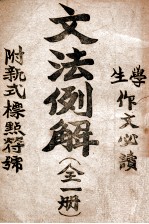 學生作文必讀
文法例解
(全一册)
附新式標點符號